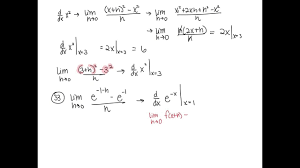 d/dx x² → lim h→0 ((x+h)² - x²)/h → lim h→0 (x² + 2xh + h² - x²)/h
→ lim h→0 h(2x+h)/h = 2x|x=3
d/dx x²|x=3 = 2x|x=3 = 6
lim h→0 ((3+h)² - 3²)/h → d/dx x²|x=3
38 lim h→0 (e^(-1-h) - e^(-1))/h → d/dx e^(-x)|x=1
lim h→0 f(x+h) -